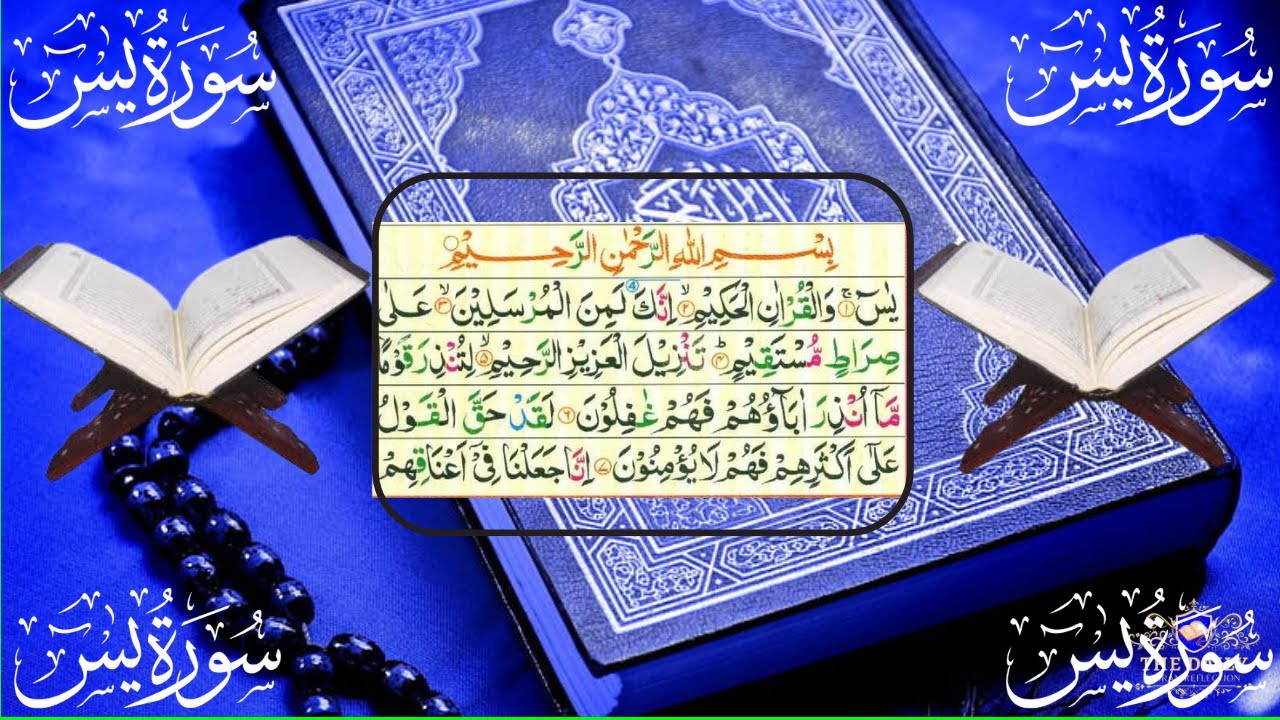 سُورَةُ يٰسٓ
سُورَةُ يٰسٓ
بِسْمِ اللهِ الرَّحْمٰنِ الرَّحِيْمِ
يٰسٓ ۚ ۝١ وَالْقُرْاٰنِ الْحَكِيْمِ ۙ ۝٢ اِنَّكَ لَمِنَ الْمُرْسَلِيْنَ ۙ ۝٣ عَلٰى
صِرَاطٍ مُّسْتَقِيْمٍ ؕ ۝٤ تَنْزِيْلَ الْعَزِيْزِ الرَّحِيْمِ ۙ ۝٥ لِتُنْذِرَ قَوْمًا
مَّاۤ اُنْذِرَ اٰبَآؤُهُمْ فَهُمْ غٰفِلُوْنَ ۝٦ لَقَدْ حَقَّ الْقَوْلُ
عَلٰٓى اَكْثَرِهِمْ فَهُمْ لَا يُؤْمِنُوْنَ ۝٧ اِنَّا جَعَلْنَا فِيْۤ اَعْنَاقِهِمْ
سُورَةُ يٰسٓ
سُورَةُ يٰسٓ
THE DAILY
REFLECTION